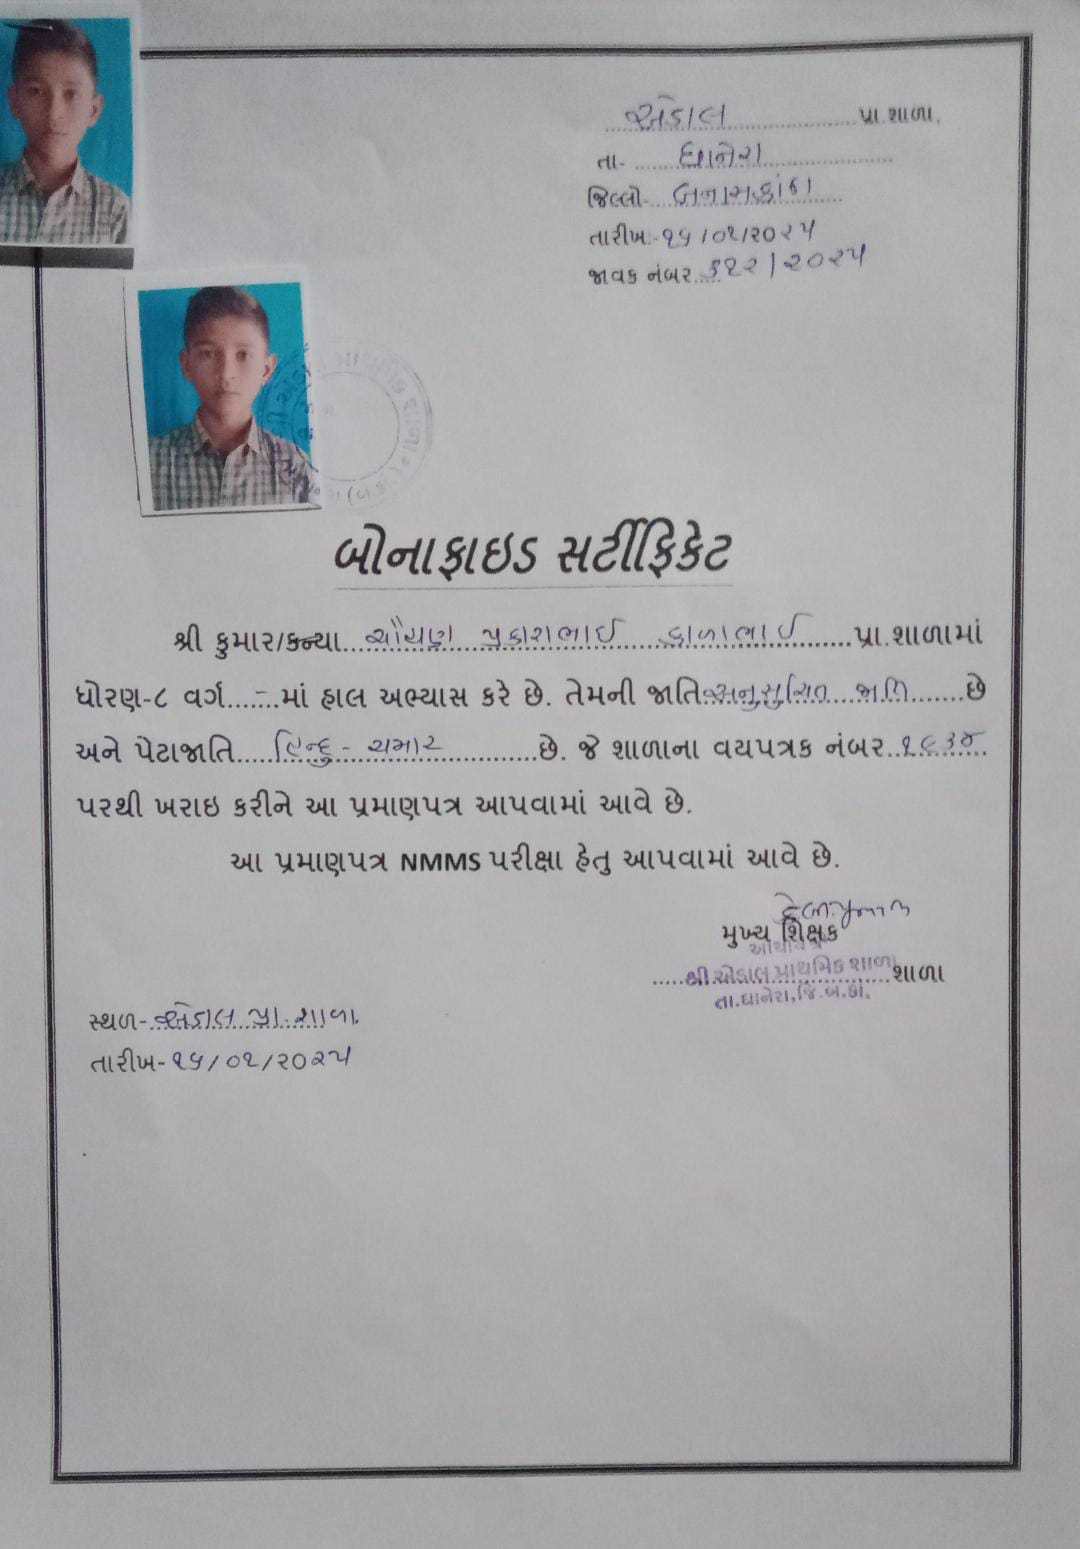 એડાલ પ્રા.શાળા,
તા- ધાનેરા
જિલ્લો- બનાસકાંઠા
તારીખ:-૧૫/૦૧/૨૦૨૫
જાવક નંબર ૩૧૨/૨૦૨૫
બોનાફાઇડ સર્ટીફિકેટ
શ્રી કુમાર/કન્યા ચૌચાણ પ્રકાશભાઈ કાળાભાઈ પ્રા.શાળામાં
ધોરણ-૮ વર્ગ.....-..માં હાલ અભ્યાસ કરે છે. તેમની જાતિ અનુસુચિત જાતિ છે
અને પેટાજાતિ હિન્દુ - ચમાર છે. જે શાળાના વયપત્રક નંબર ૧૯૩૪
પરથી ખરાઇ કરીને આ પ્રમાણપત્ર આપવામાં આવે છે.
આ પ્રમાણપત્ર NMMS પરીક્ષા હેતુ આપવામાં આવે છે.
મુખ્ય શિક્ષક
આચાર્ય
શ્રી એડાલ પ્રાથમિક શાળા શાળા
તા.ધાનેરા,જિ.બ.કાં.
સ્થળ- એડાલ પ્રા. શાળા
તારીખ- ૧૫/૦૧/૨૦૨૫